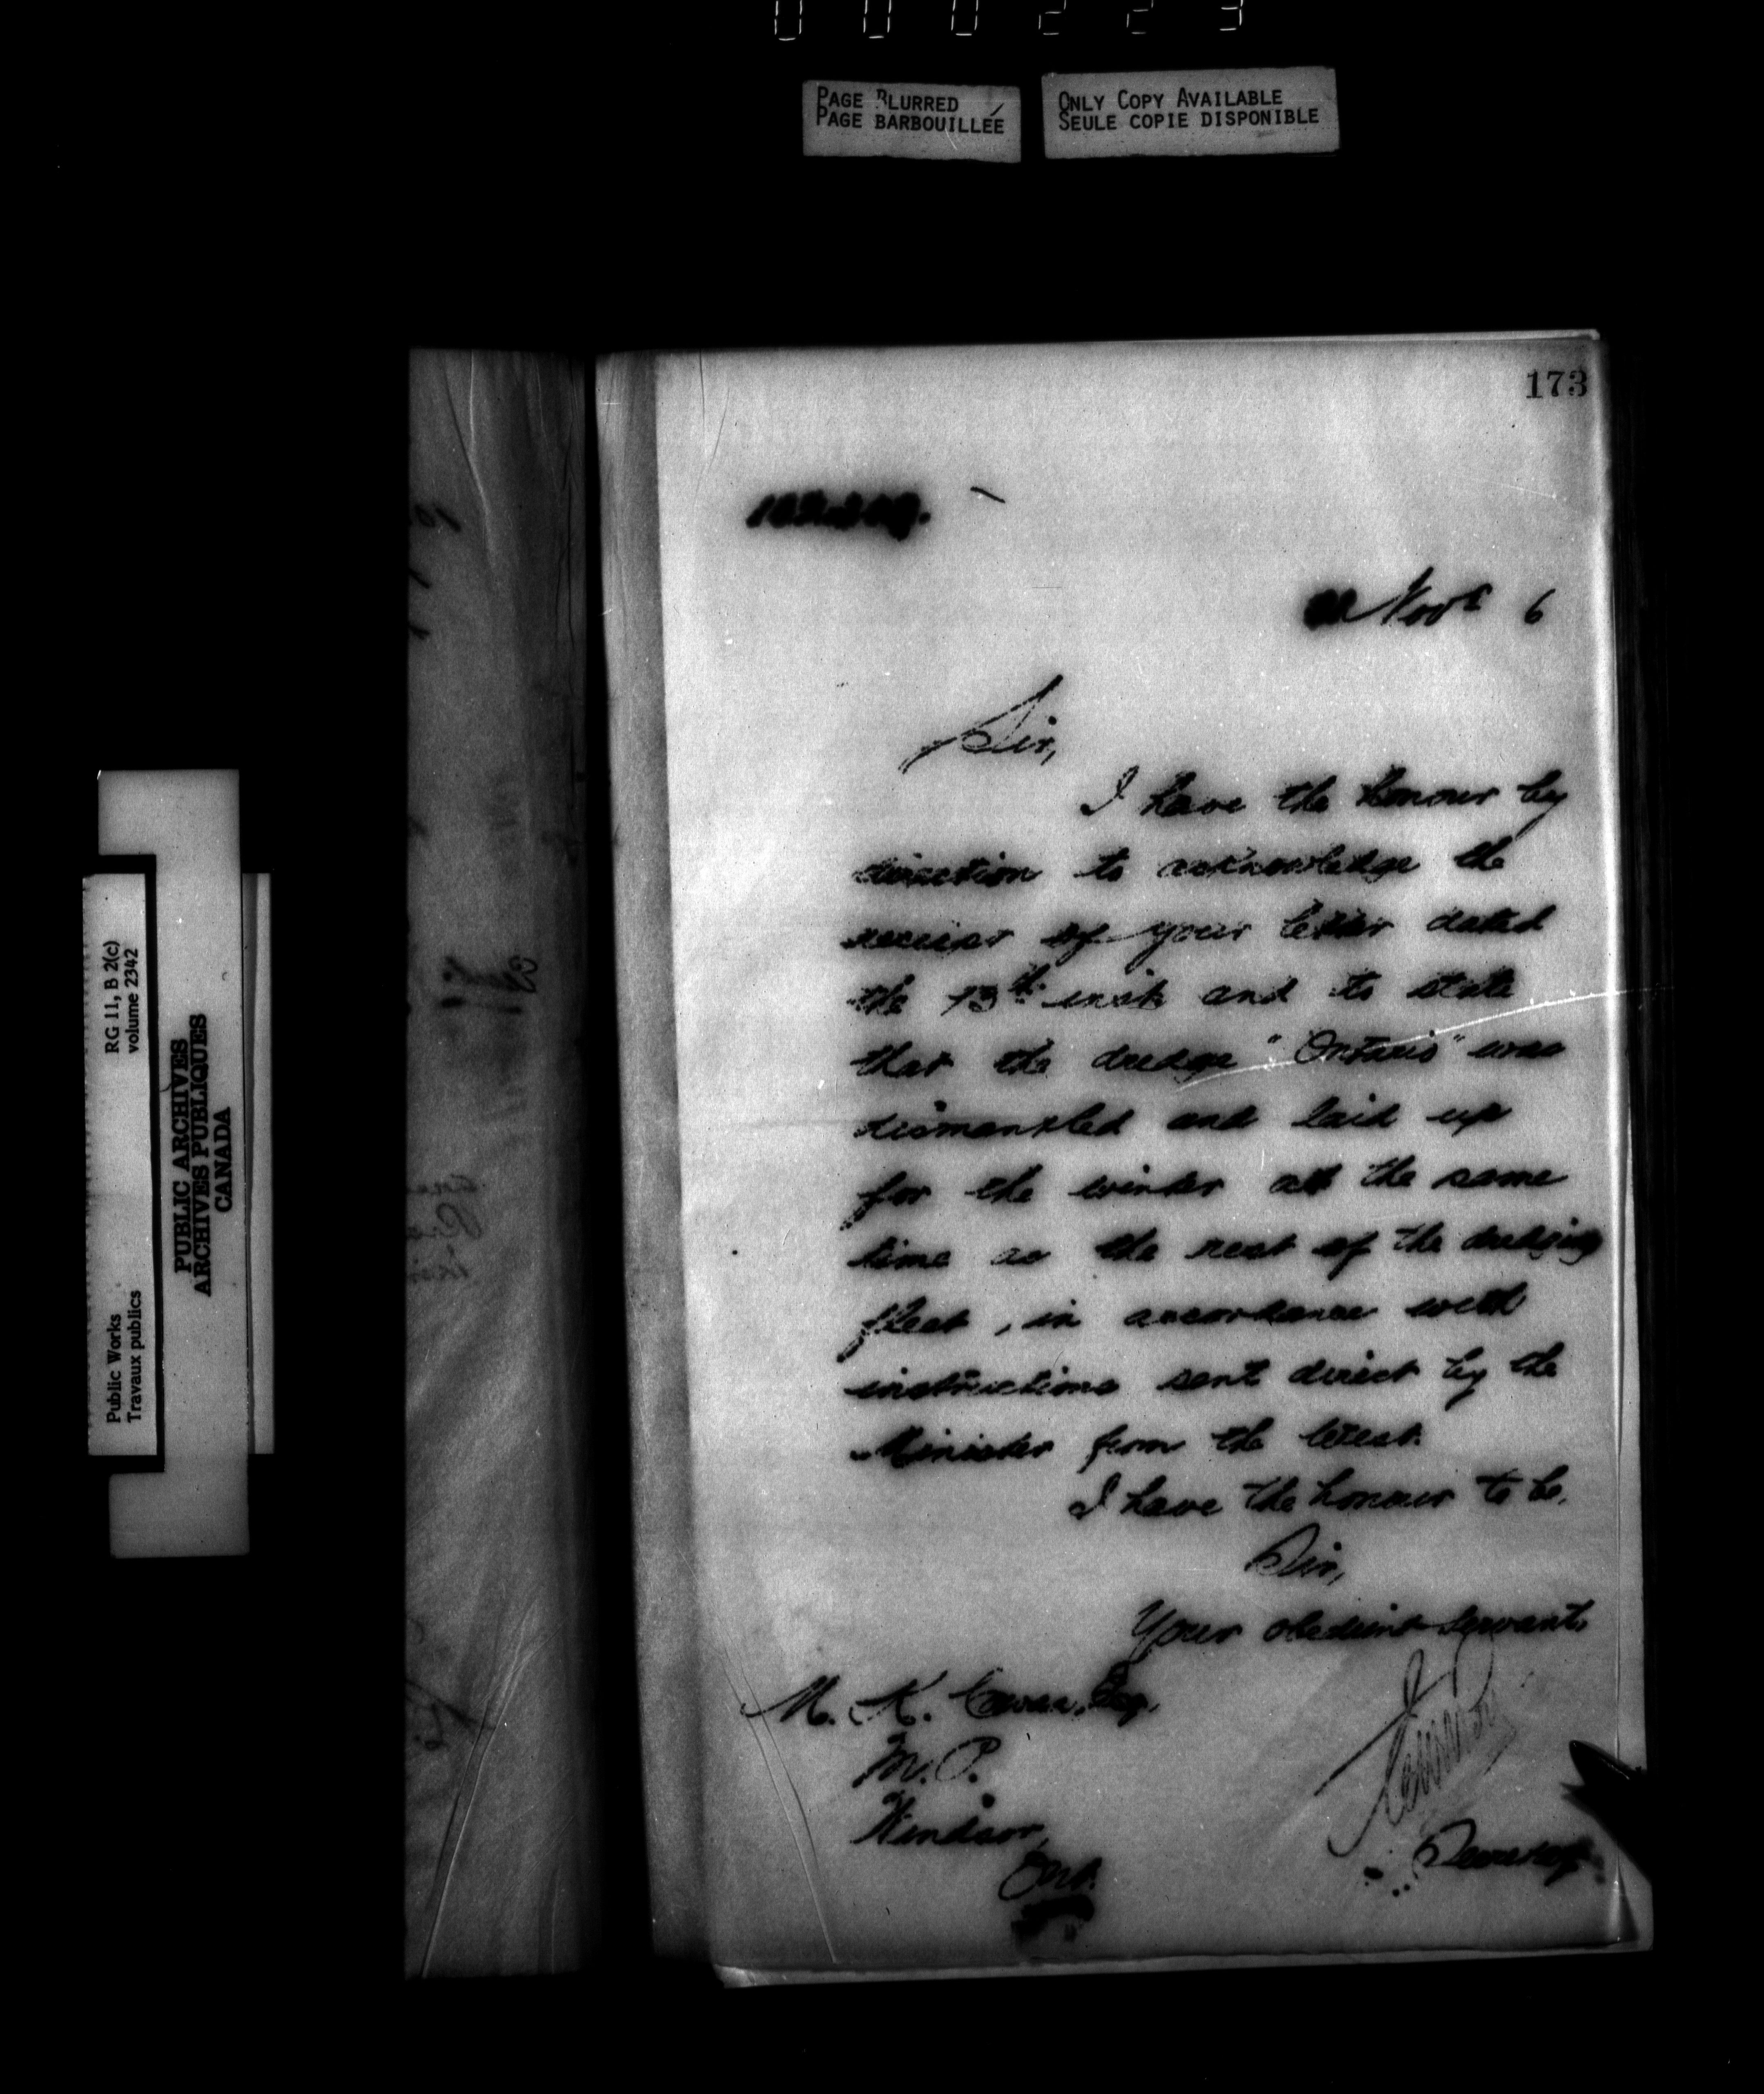 000223
PAGE BLURRED
PAGE BARBOUILLÉE
ONLY COPY AVAILABLE
SEULE COPIE DISPONIBLE
173
Novr 6
Sir,
I have the honour by
direction to acknowledge the
receipt of your letter dated
the 13th inst. and to state
that the dredge "Ontario" was
dismantled and laid up
for the winter at the same
time as the rest of the dredging
fleet, in accordance with
instructions sent direct by the
Minister from the West.
I have the honour to be,
Sir,
Your obedient servant,
M. K. Cowan, Esq.
M.P.
Windsor,
Ont.
Secretary
Public Works
Travaux publics
RG 11, B 2(c)
volume 2342
PUBLIC ARCHIVES
ARCHIVES PUBLIQUES
CANADA